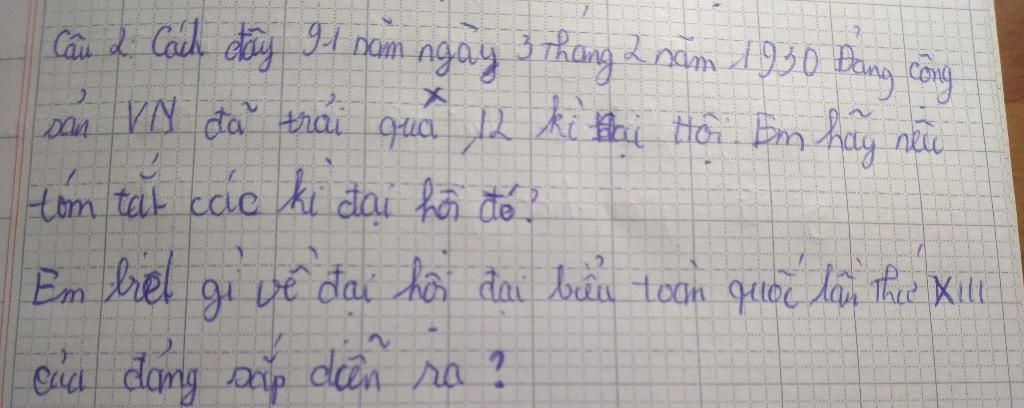 Câu 2. Cách đây 91 năm ngày 3 tháng 2 năm 1930 Đảng cộng
sản VN đã trải qua 12 kì đại Hội. Em hãy nêu
tóm tắt các kì đại hội đó?
Em biết gì về đại hội đại biểu toàn quốc lần thứ XIII
của đảng sắp diễn ra?